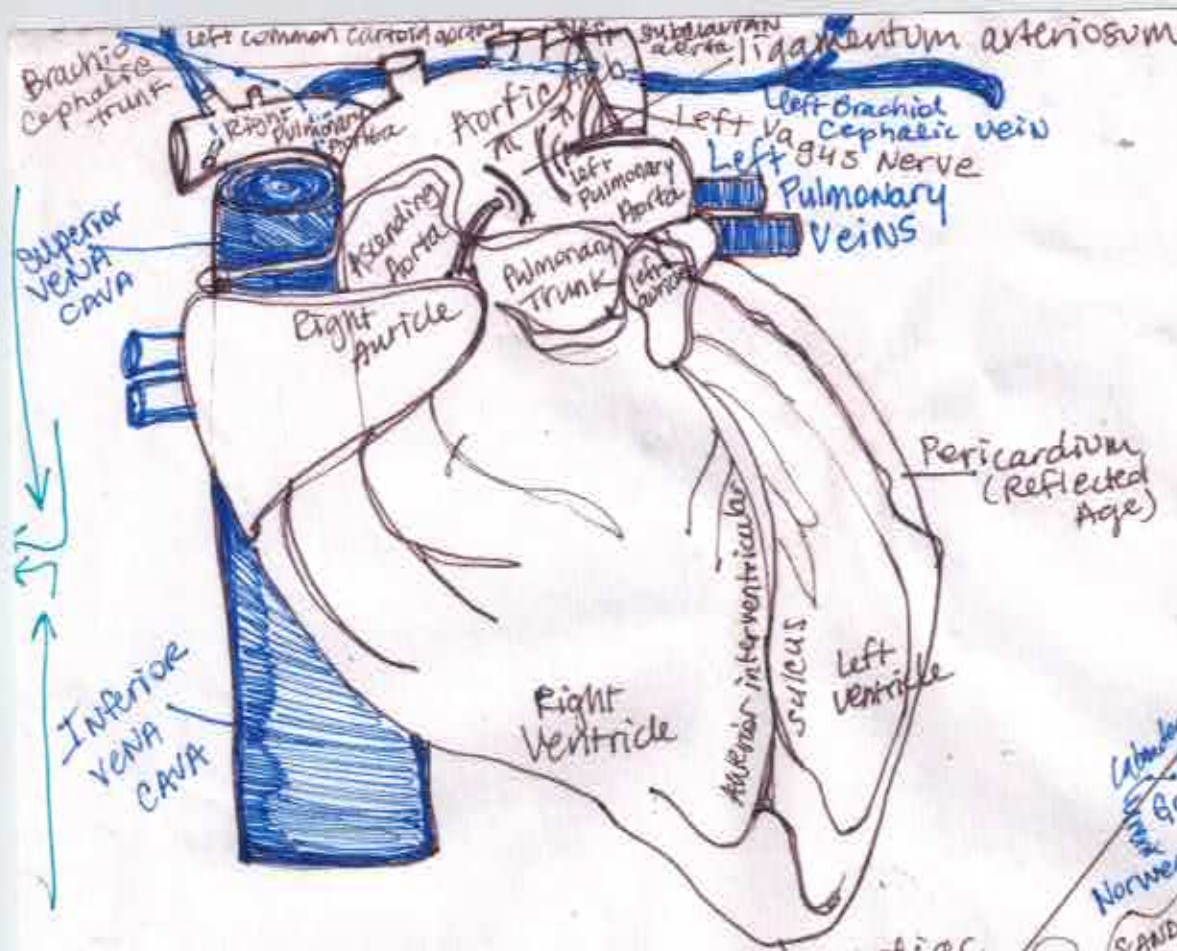 Left common carotid aorta
left subclavian
aorta
ligamentum arteriosum
Brachio
Cephalic
trunk
Right
Pulmonary
Aorta
Aortic
Arch
Left Brachial
Cephalic Vein
Left Vagus Nerve
Left
Pulmonary
Aorta
Left
Pulmonary
Veins
Superior
VENA
CAVA
Ascending
Aorta
Pulmonary
Trunk
left
auricle
Right
Auricle
Pericardium
(Reflected
Age)
Anterior interventricular
sulcus
Left
Ventricle
Right
Ventricle
Inferior
VENA
CAVA
Norwe
SAND